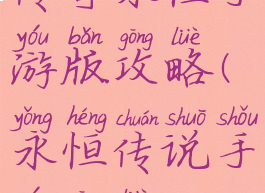 yóu bǎn gōng lüè
游版攻略(
yǒng héng chuán shuō shǒu
永恒传说手